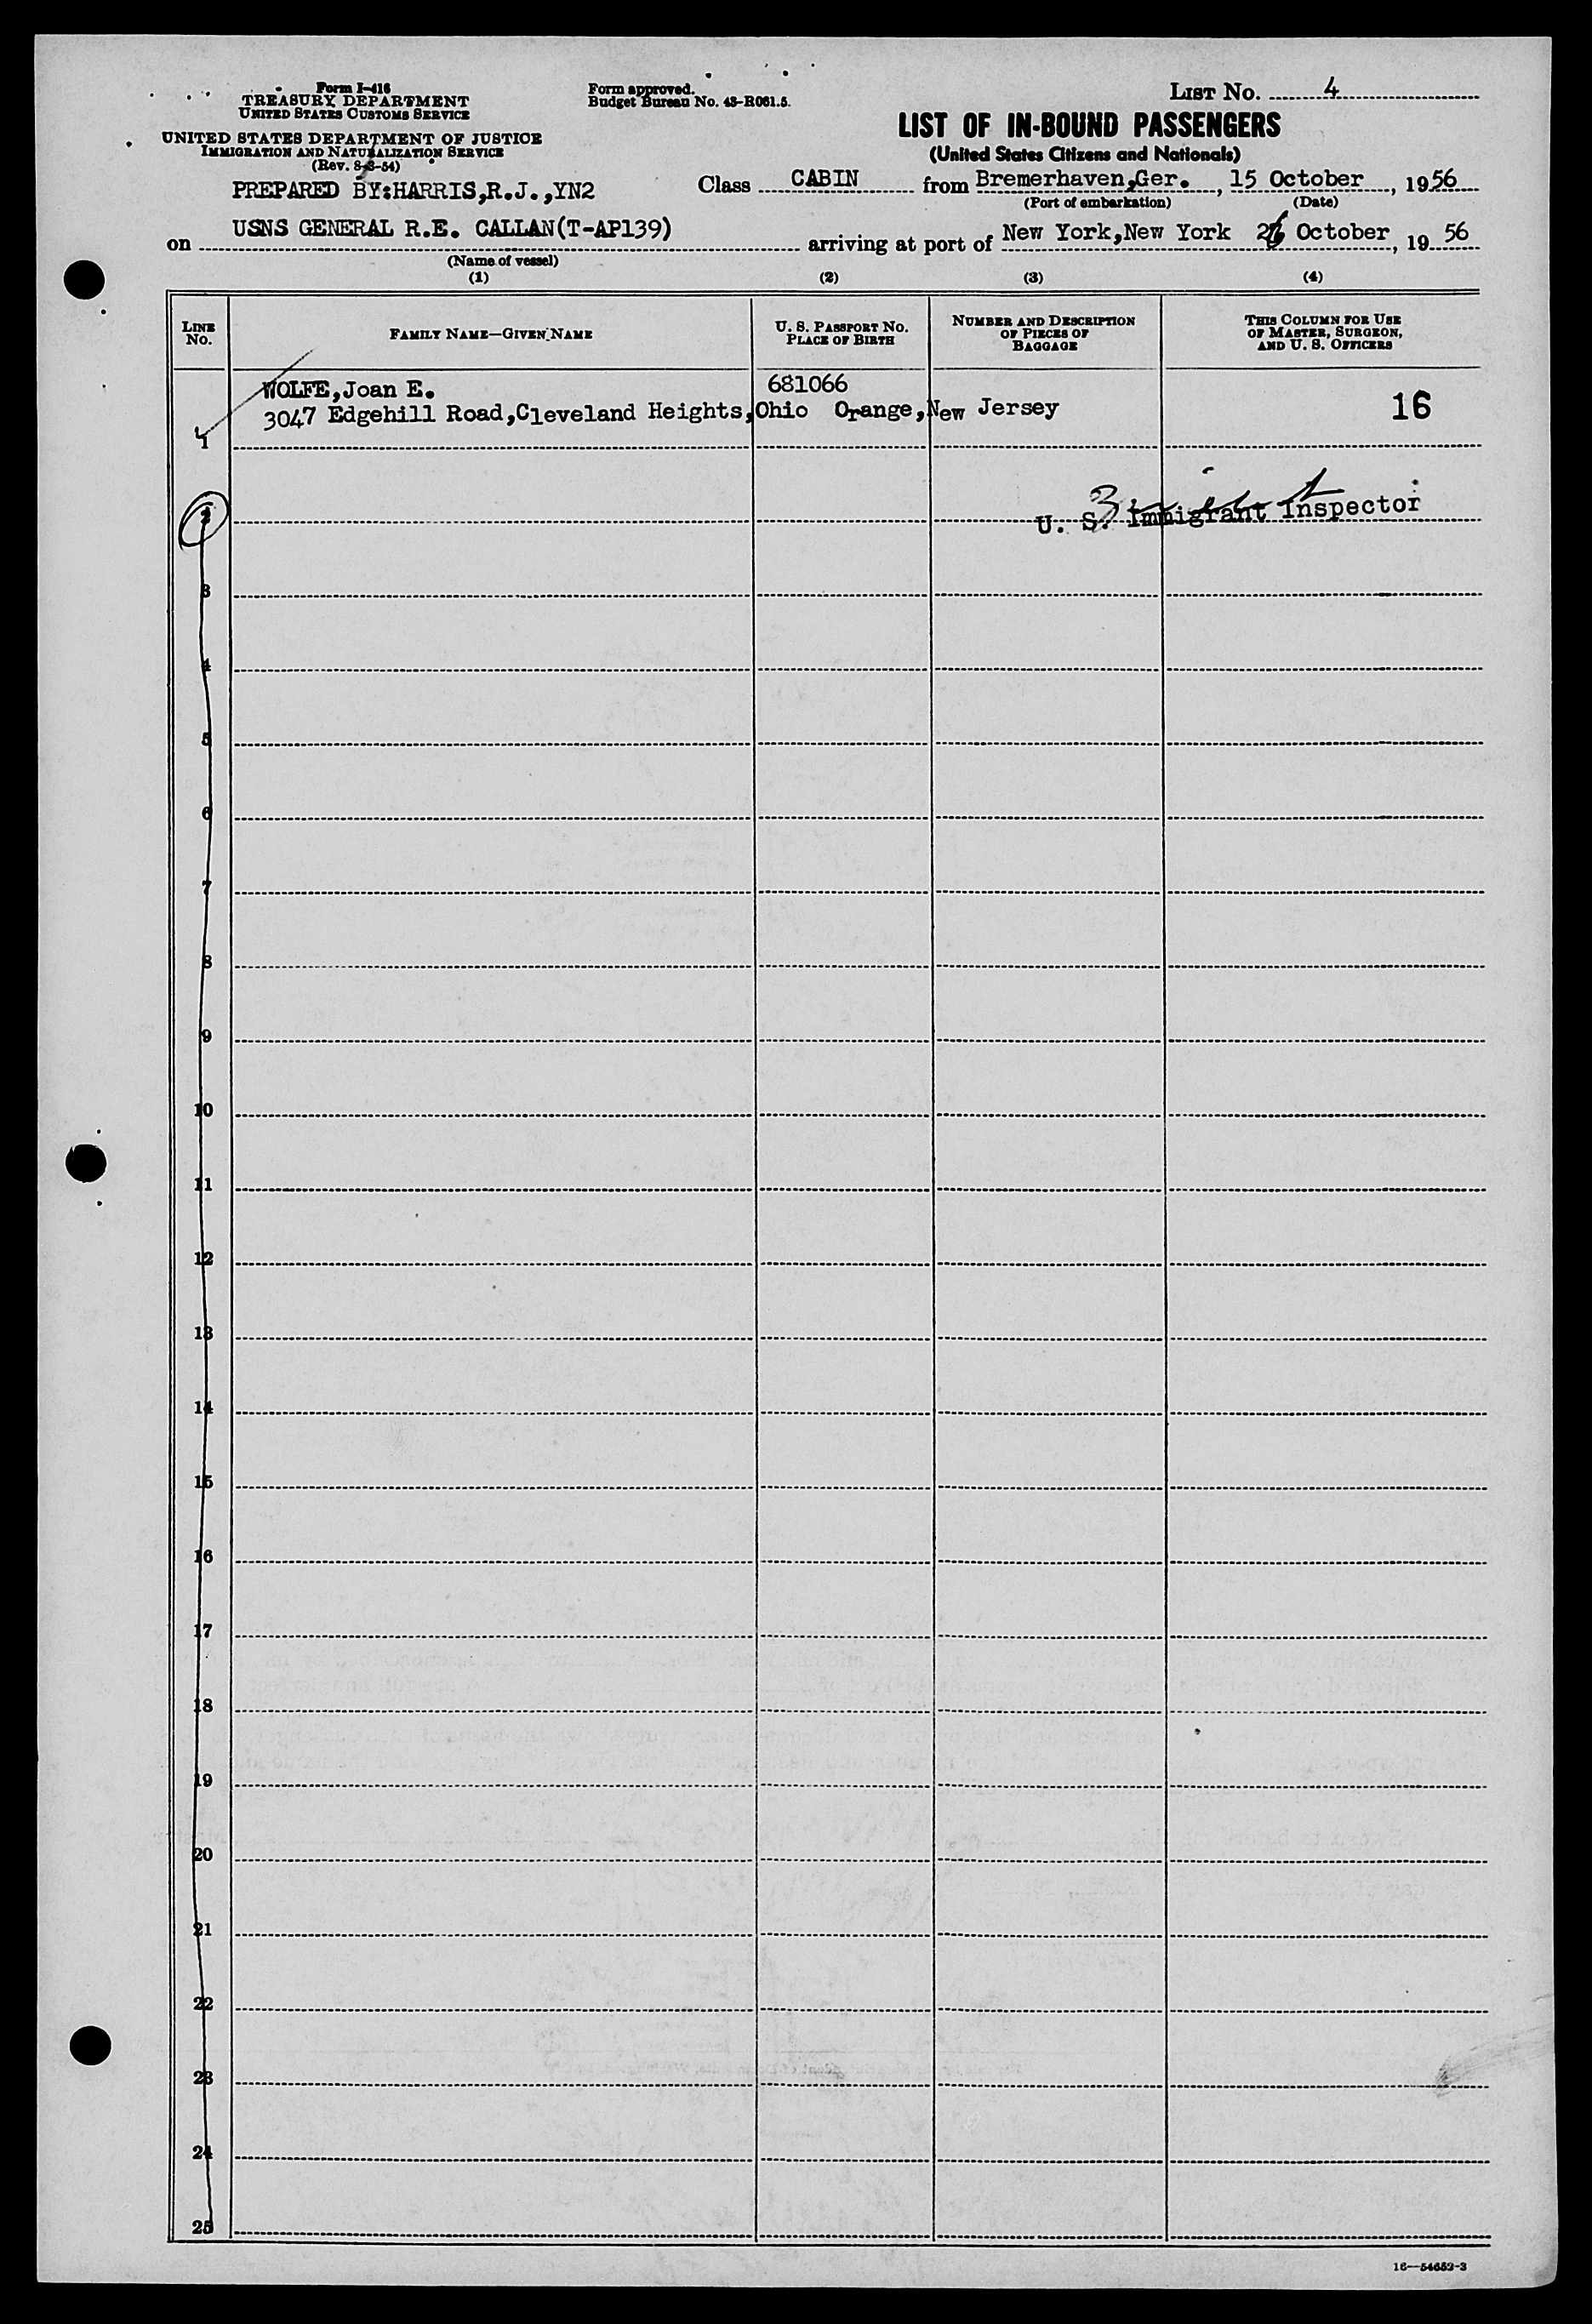 Form I-416
TREASURY DEPARTMENT
UNITED STATES CUSTOMS SERVICE
UNITED STATES DEPARTMENT OF JUSTICE
IMMIGRATION AND NATURALIZATION SERVICE
(Rev. 8-3-54)
Form approved.
Budget Bureau No. 43-R061.5.
LIST No. 4
LIST OF IN-BOUND PASSENGERS
(United States Citizens and Nationals)
PREPARED BY:HARRIS,R.J.,YN2
Class CABIN from Bremerhaven,Ger., 15 October, 1956
(Port of embarkation) (Date)
on USNS GENERAL R.E. CALLAN(T-AP139) arriving at port of New York,New York 26 October, 19 56
(Name of vessel)
(1) (2) (3) (4)
LINE No.
FAMILY NAME—GIVEN NAME
U. S. PASSPORT NO.
PLACE OF BIRTH
NUMBER AND DESCRIPTION
OF PIECES OF
BAGGAGE
THIS COLUMN FOR USE
OF MASTER, SURGEON,
AND U. S. OFFICERS
WOLFE,Joan E. 681066
3047 Edgehill Road,Cleveland Heights,Ohio Orange,New Jersey 16
1
2
U. S. Immigrant Inspector
3
4
5
6
7
8
9
10
11
12
13
14
15
16
17
18
19
20
21
22
23
24
25